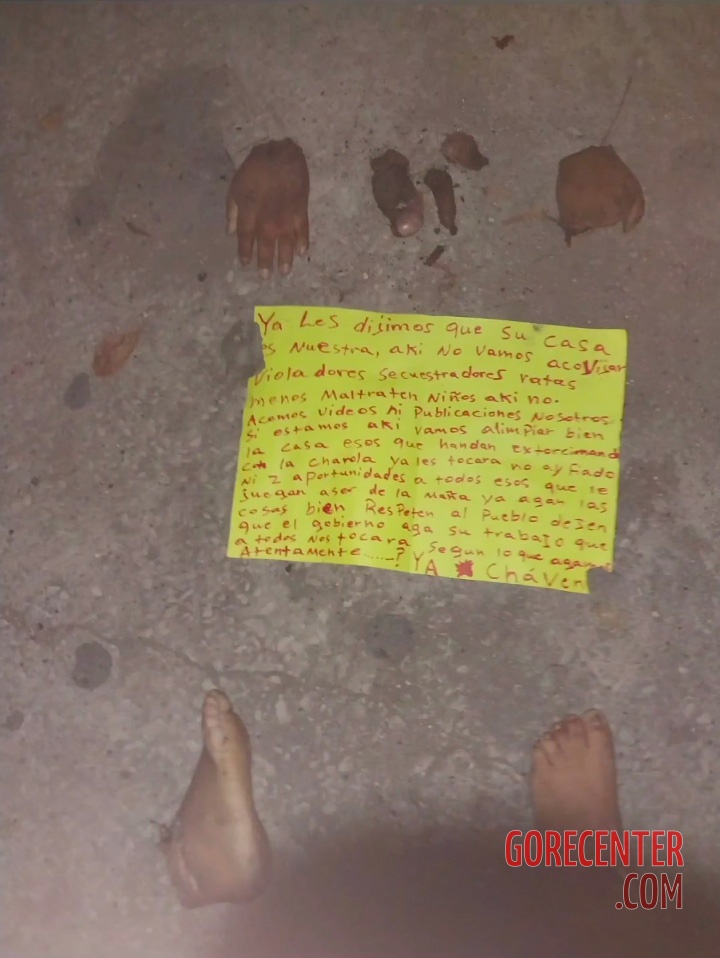 Ya Les disimos que su casa
es Nuestra, aki No Vamos acovisar
Violadores secuestradores ratas
menos Maltraten Niños aki no.
Acemos videos Ni Publicaciones Nosotros
Si estamos aki vamos alimpiar bien
la casa esos que handan extorcinando
con la charola ya les tocara no ay Fado
Ni 2 aportunidades a todos esos que se
juegan aser de la Maña ya agan las
cosas bien Respeten al Pueblo dejen
que el gobierno aga su trabajo que
a todos Nos tocara segun lo que agamos
Atentamente......? YA Cháven
GORECENTER
.COM